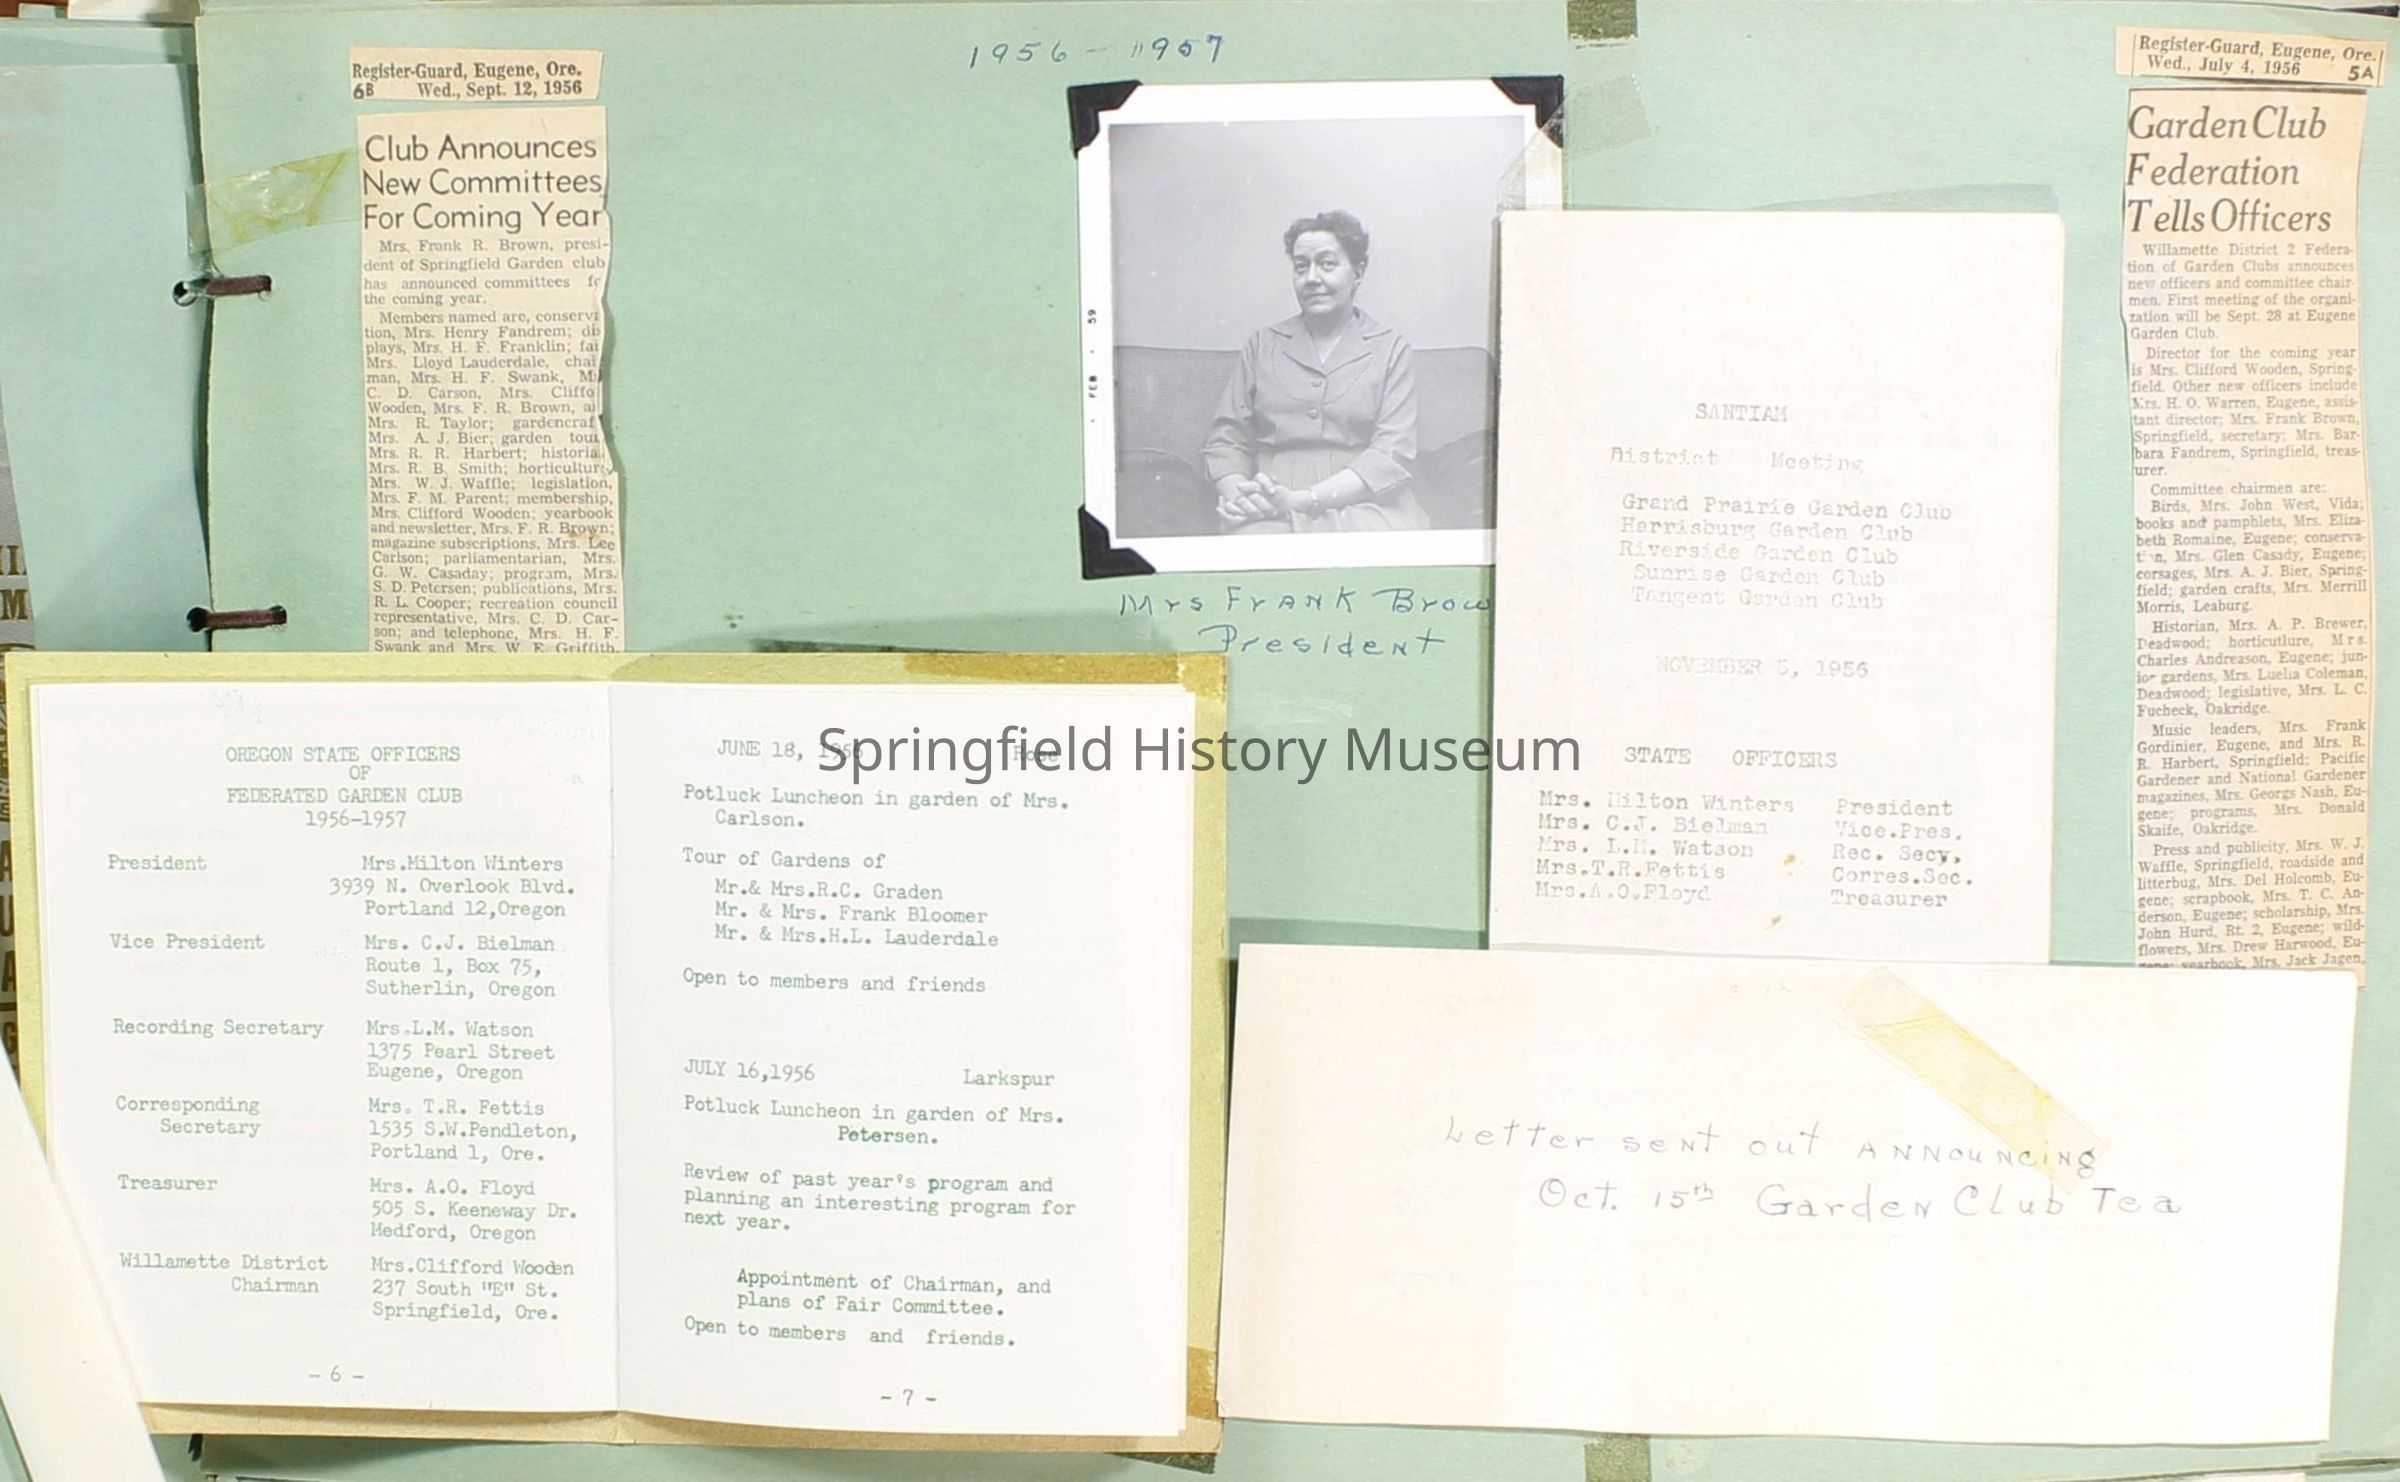 1956 - 1957
Register-Guard, Eugene, Ore.
6B Wed., Sept. 12, 1956
Club Announces
New Committees
For Coming Year
Mrs. Frank R. Brown, presi-
dent of Springfield Garden club
has announced committees
the coming year.
Members named are, conserva
tion, Mrs. Henry Fandrem; dis
plays, Mrs. H. F. Franklin; fai
Mrs. Lloyd Lauderdale, chai
man, Mrs. H. F. Swank, M
C. D. Carson, Mrs. Cliffo
Wooden, Mrs. F. R. Brown, a
Mrs. R. Taylor; gardencraf
Mrs. A. J. Bier; garden tour
Mrs. R. R. Harbert; historia
Mrs. R. B. Smith; horticultur
Mrs. W. J. Waffle; legislation,
Mrs. F. M. Parent; membership,
Mrs. Clifford Wooden; yearbook
and newsletter, Mrs. F. R. Brown;
magazine subscriptions, Mrs. Lee
Carlson; parliamentarian, Mrs.
G. W. Casaday; program, Mrs.
S. D. Petersen; publications, Mrs.
R. L. Cooper; recreation council
representative, Mrs. C. D. Car-
son; and telephone, Mrs. H. F.
Swank and Mrs. W. E. Griffith.
FEB 59
Mrs Frank Brow
President
SANTIAM
District Meeting
Grand Prairie Garden Club
Harrisburg Garden Club
Riverside Garden Club
Sunrise Garden Club
Tangent Garden Club
NOVEMBER 5, 1956
STATE OFFICERS
Mrs. Milton Winters President
Mrs. C.J. Bielman Vice.Pres.
Mrs. L.M. Watson Rec. Secy.
Mrs.T.R.Fettis Corres.Sec.
Mrs.A.O.Floyd Treasurer
Register-Guard, Eugene, Ore.
Wed., July 4, 1956 5A
Garden Club
Federation
Tells Officers
Willamette District 2 Federa-
tion of Garden Clubs announces
new officers and committee chair-
men. First meeting of the organi-
zation will be Sept. 28 at Eugene
Garden Club.
Director for the coming year
is Mrs. Clifford Wooden, Spring-
field. Other new officers include
Mrs. H. O. Warren, Eugene, assis-
tant director; Mrs. Frank Brown,
Springfield, secretary; Mrs. Bar-
bara Fandrem, Springfield, treas-
urer.
Committee chairmen are:
Birds, Mrs. John West, Vida;
books and pamphlets, Mrs. Eliza-
beth Romaine, Eugene; conserva-
tion, Mrs. Glen Casady, Eugene;
corsages, Mrs. A. J. Bier, Spring-
field; garden crafts, Mrs. Merrill
Morris, Leaburg.
Historian, Mrs. A. P. Brewer,
Deadwood; horticutlure, Mrs.
Charles Andreason, Eugene; jun-
ior gardens, Mrs. Luella Coleman,
Deadwood; legislative, Mrs. L. C.
Fucheck, Oakridge.
Music leaders, Mrs. Frank
Gordinier, Eugene, and Mrs. R.
R. Harbert, Springfield; Pacific
Gardener and National Gardener
magazines, Mrs. Georgs Nash, Eu-
gene; programs, Mrs. Donald
Skaife, Oakridge.
Press and publicity, Mrs. W. J.
Waffle, Springfield, roadside and
litterbug, Mrs. Del Holcomb, Eu-
gene; scrapbook, Mrs. T. C. An-
derson, Eugene; scholarship, Mrs.
John Hurd, Rt. 2, Eugene; wild-
flowers, Mrs. Drew Harwood, Eu-
gene; yearbook, Mrs. Jack Jagen,
OREGON STATE OFFICERS
OF
FEDERATED GARDEN CLUB
1956-1957
President Mrs.Milton Winters
3939 N. Overlook Blvd.
Portland 12,Oregon
Vice President Mrs. C.J. Bielman
Route 1, Box 75,
Sutherlin, Oregon
Recording Secretary Mrs.L.M. Watson
1375 Pearl Street
Eugene, Oregon
Corresponding Mrs. T.R. Fettis
Secretary 1535 S.W.Pendleton,
Portland 1, Ore.
Treasurer Mrs. A.O. Floyd
505 S. Keeneway Dr.
Medford, Oregon
Willamette District Mrs.Clifford Wooden
Chairman 237 South "E" St.
Springfield, Ore.
- 6 -
JUNE 18, 1956 Rose
Potluck Luncheon in garden of Mrs.
Carlson.
Tour of Gardens of
Mr.& Mrs.R.C. Graden
Mr. & Mrs. Frank Bloomer
Mr. & Mrs.H.L. Lauderdale
Open to members and friends
JULY 16,1956 Larkspur
Potluck Luncheon in garden of Mrs.
Petersen.
Review of past year's program and
planning an interesting program for
next year.
Appointment of Chairman, and
plans of Fair Committee.
Open to members and friends.
- 7 -
Letter sent out announcing
Oct. 15th Garden Club Tea
Springfield History Museum